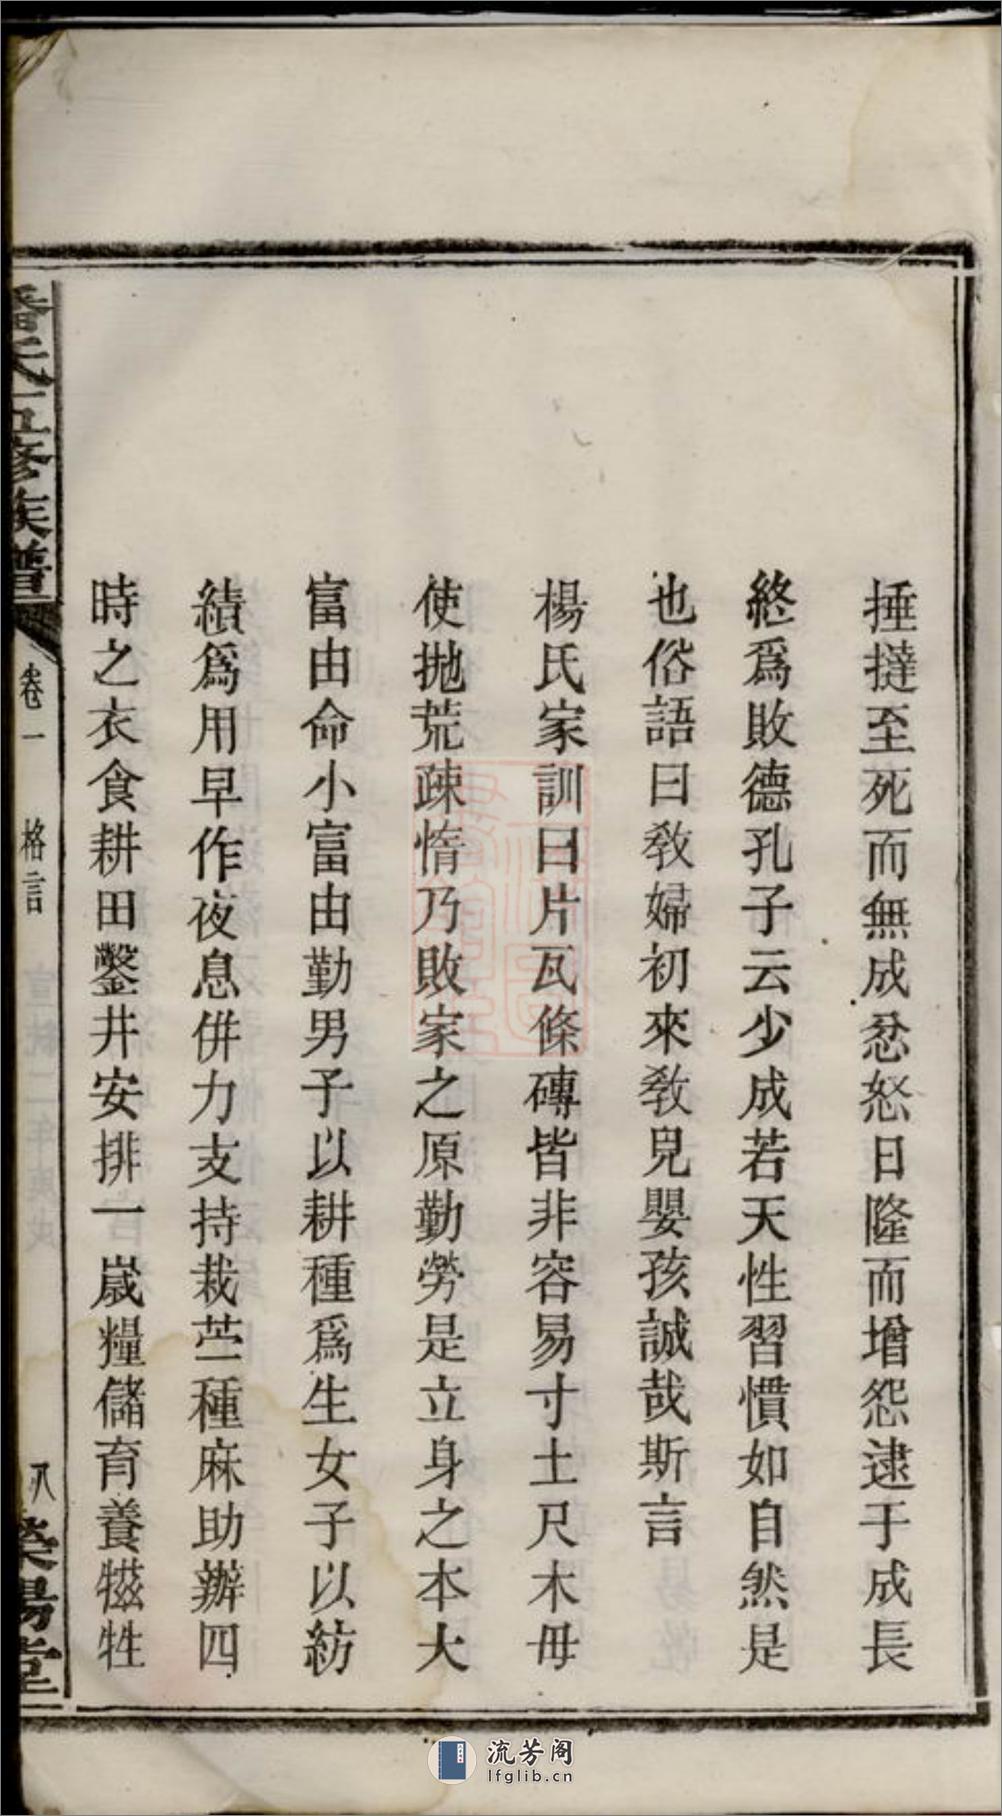 捶撻至死而無成忿怒日隆而增怨逮于成長
終爲敗德孔子云少成若天性習慣如自然是
也俗語曰敎婦初來敎兒嬰孩誠哉斯言
楊氏家訓曰片瓦條磚皆非容易寸土尺木毋
使拋荒疎惰乃敗家之原勤勞是立身之本大
富由命小富由勤男子以耕種爲生女子以紡
績爲用早作夜息倂力支持栽苎種麻助辦四
時之衣食耕田鑿井安排一歲糧儲育養犠牲
潘氏五修族譜
卷一
格言
八
滎陽堂
宣統二年庚戌
流芳阁
lfglib.cn